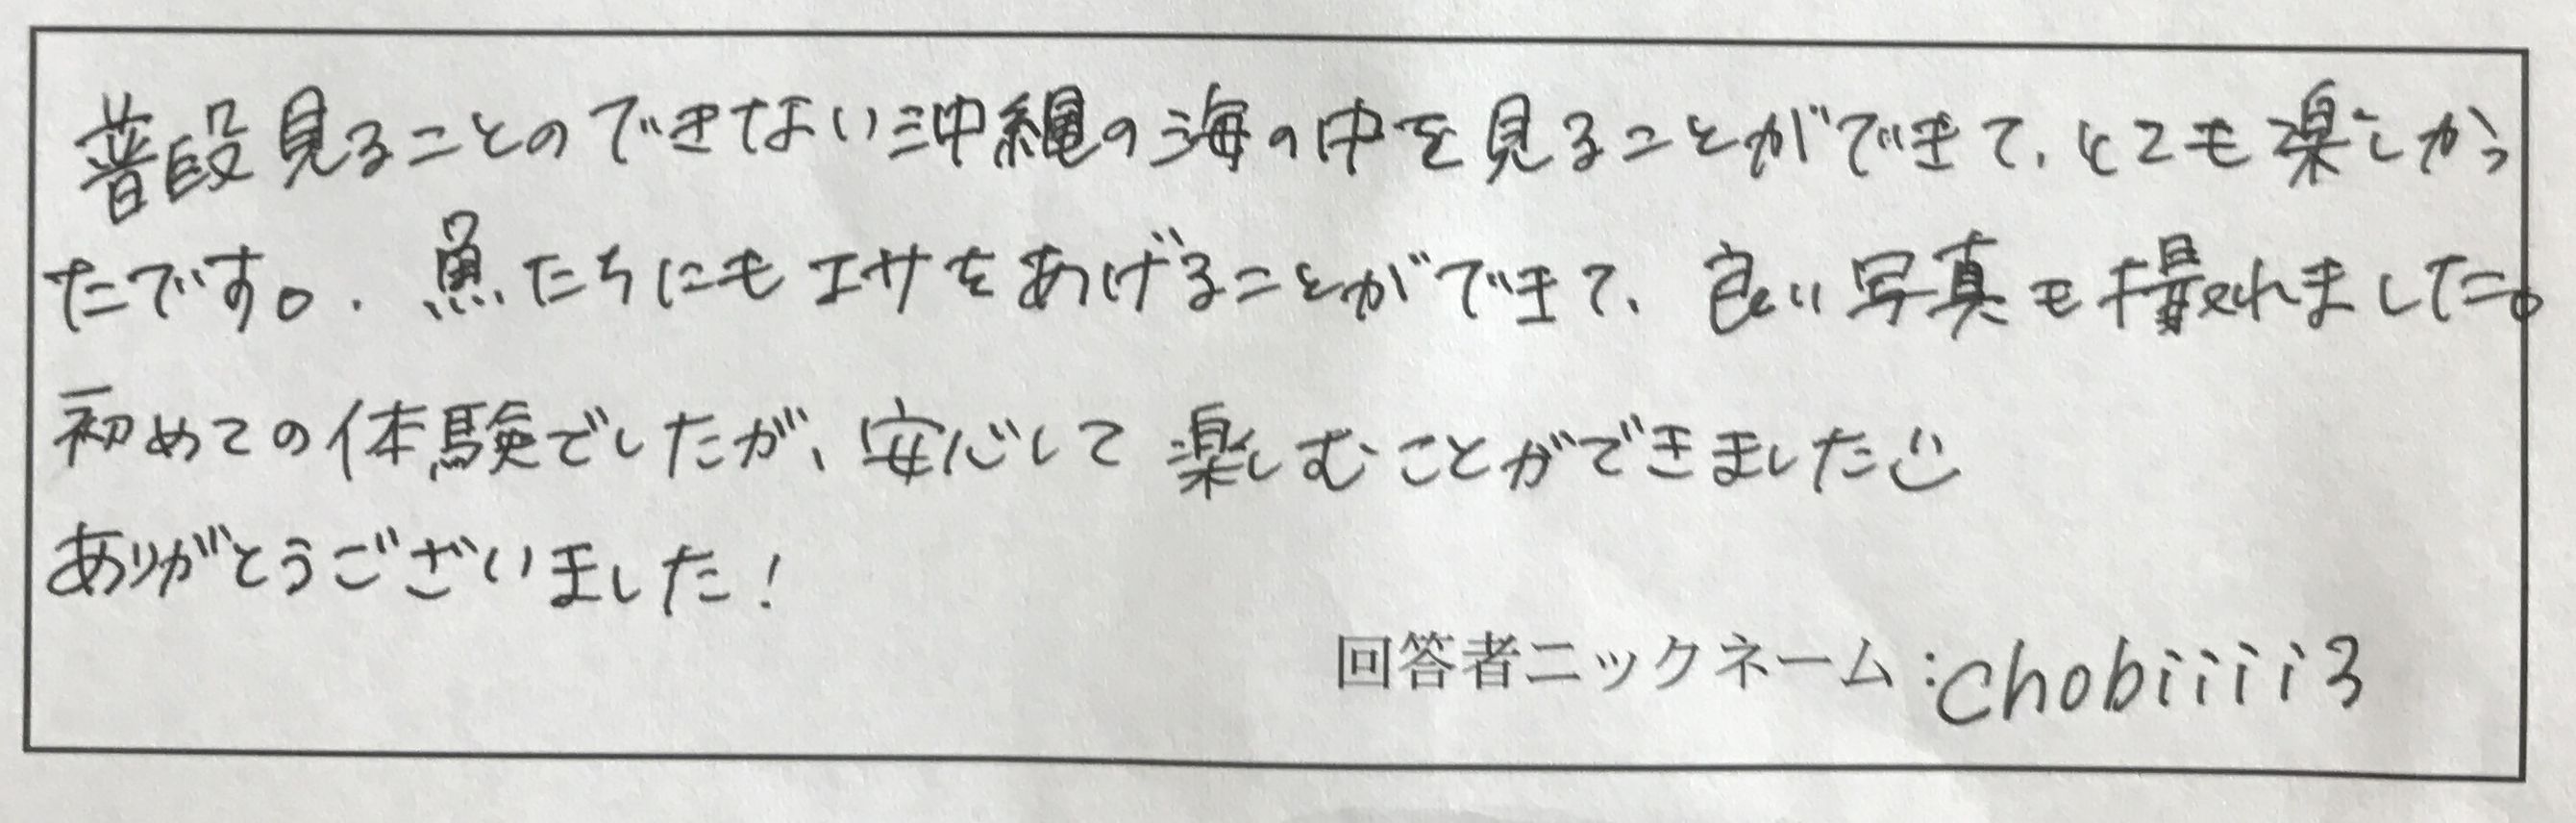 普段見ることのできない沖縄の海の中を見ることができて、とても楽しかっ
たです。魚たちにもエサをあげることができて、良い写真も撮れました。
初めての体験でしたが、安心して楽しむことができました☺
ありがとうございました!
回答者ニックネーム:chobiiii3